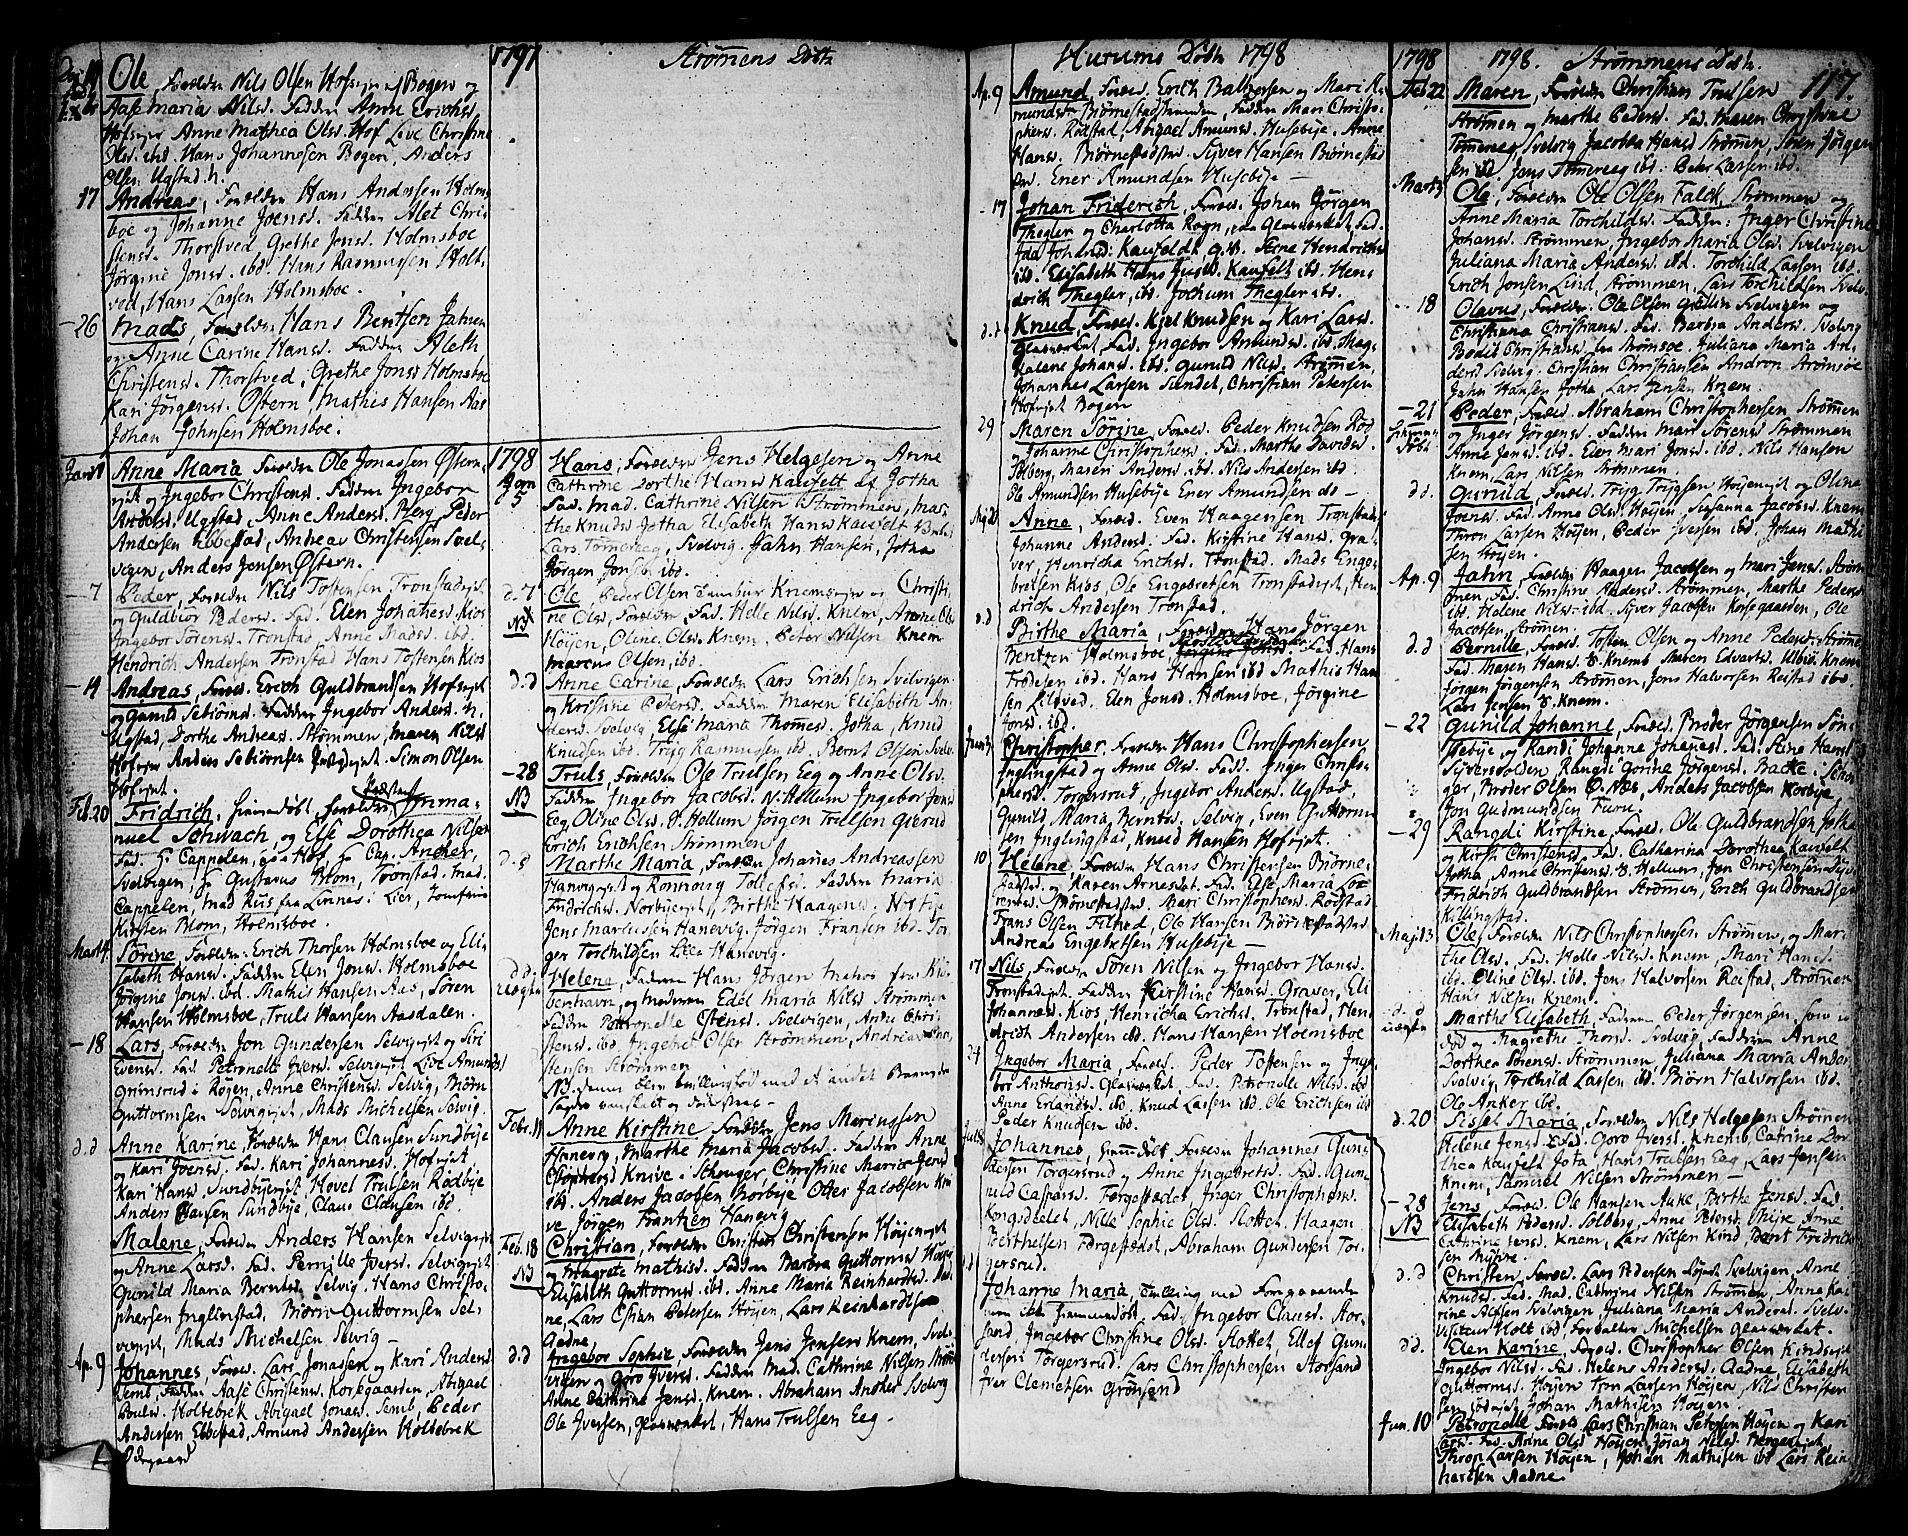 1797 Strømens Døbte
Ole, Forældre Nils Olsen Hofseyer af Bogen og
Aase Maria Nilsd. Faddere Anne Erichsd.
Hofseyer Anne Mathea Olsd. Hof Live Christine
Olsd. ibd. Hans Johannesen Bogen, Anders
Olsen Ugstad N.
17 Andreas, Forældre Hans Andersen Holms
boe og Johanne Joensd. Faddere Alet Chri
stensd. Thorstved Grethe Jonsd. Holmsboe
Jørgine Jonsd. ibd. Hans Rasmussen Holt
ved, Hans Larsen Holmsboe.
-26 Mads, Forældre Hans Bentsen Jahnen
og Anne Carine Hansd. Faddere Aleth
Christensd. Thorstved, Grethe Jonsd Holmsboe
Kari Jørgensd. Østern, Mathis Hansen Aas
Johan Johnsen Holmsboe.
Anne Maria Foreldre Ole Jonassen Østern
eyet og Ingebor Christensd. Faddere Ingebor
Andersd. Ugstad, Anne Andersd. Berg, Peder
Andersen Ebbestad, Andreas Christensen Svel
vegen, Anders Jensen Østern.
-7 Peder, Forældre Nils Tostensen Tronstadeyet
og Guldbiør Pedersd. Fad. Elen Johannesd. Kios
Ingebor Sørensd. Tronstad, Anne Madsd. ibd.
Hendrich Andersen Tronstad Hans Tostensen Kios
-14 Andreas, Foreld. Erich Guldbrandsen Hofseyet
og Gunild Sebiørnsd. Faddere Ingebor Andersd. N.
Ugstad, Dorthe Andreasd. Strømmen, Maren Nilsd
Hofseyer Anders Sebiørnsen Simon Olsen
Hofseyet.
Feb. 20 Fridrich, hiemmedøbt, Forældre Imma-
nuel Schwach, og Else Dorothea Nilsen
Fad. Fr. Cappelen, paa Hof, Fr. Cap. Ancker,
Svelvigen, Gustavus Blom, Tronstad, Mad.
Cappelen, Mad Riis fra Linnes i Lier, Jomfru
Kirsten Blom, Holmsboe.
Mart 4. Sørine, Forældre: Erich Thorsen Holmsboe og Eli
sabeth Hansd. Faddere Elen Jonsd. Holmsboe
Jørgine Jonsd. ibd. Mathis Hansen Aas, Søren
Hansen Holmsboe, Truls Hansen Aasdalen.
-18 Lars, Forældre Jon Gundersen Selvigeyet og Siri
Evensd. Fad. Petronelle Iversd. Selvigeyet Live Amunds
Grimsrud i Røgen, Anne Christensd. Selvig, Biørn
Guttormsen Selvigeyet, Mads Michelsen Selvig.
d. d Anne Karine, Forældre Hans Clausen Sundbye
og Kari Joensd. Fad. Kari Johannesd. Hofseyet
Kari Hansd. Sundbyeeyet, Hovel Trulsen Rødbye
Anders Hansen Sundbye, Claus Clausen ibd.
Malene, Forældre Anders Hansen Selvigeyet
og Anne Larsd. Fad. Pernille Iversd. Selvigeyet
Gunild Maria Berntsd. Selvig, Hans Christo
phersen Inglingstad, Biørn Guttormsen Sel-
vigeyet, Mads Michelsen Selvig -
Ap. 9 Johannes, Foreld. Lars Jonassen og Kari Andersd
Semb, Faddere Aase Christensd. Korsegaarden, Abigael
Poulsd. Holtebrek Abigael Jonasd. Semb, Peder
Andersen Ebbestad, Amund Andersen Holtebrek
Ødegaard
1798 Hans, Forældre Jens Helgesen og Anne
Cathrine Dorthe Hansd Kaufelt af Jotha
Fad. Mad. Cathrine Nilsen Strømmen, Mar
the Knudsd Jotha Elisabeth Hansd Kaufelt
Lars Tømereeg, Svelvig. Jahn Hansen, Jotha
Jørgen Jonsen ibd.
d. 7 Ole Peder Olsen Tambur Knemseyer og Christi
NB ne Olsd, Forældre Fad. Helle Nilsd. Knem, Anne Olsd
Høyen, Oline Olsd. Knem. Peter Nilsen Knem
Marcus Olsen, ibd.
d. d Anne Carine, Forældre Lars Erichsen Svelvigen
og Kristine Petersd. Faddere Maren Elisabeth An
dersd. Svelvig Else Maria Thomesd. Jotha, Knud
Knudsen ibd. Tryg Rasmussen ibd. Bernt Olsen Svelv.
-28 Truls, Forældre Ole Trulsen Eeg og Anne Olsd.
NB Faddere Ingebor Jacobsd. N. Hellum Ingebor Jonsd
Eeg, Oline Olsd. S. Hellum Jørgen Trulsen Gierud
Erich Erichsen Strømmen
Marthe Maria, Forældre Johanes Andreassen
Hanevigeyet og Ronnoug Tollefsd. Faddere Maria
Fredrichsd. Norbyeeyet, Birthe Haagensd.
Jens Mariussen Hanevig. Jørgen Fransen ibd. Tor
ger Torchildsen Lille Hanevig.
d d Helena, Faderen Hans Jørgen Matros fra Kiø
uægte benhavn, og Moderen Edel Maria Nilsd Strømmen
Faddere Petronelle Ostensd. Svelvigen, Anne Chri
stensd. ibd. Ingebret Olsen Strømmen, Andreas Chri
stensen Strømmen
Febr. 11 Anne Kirstine, Forældre Jens Mariussen
Hanevig, Marthe Maria Jacobsd. Faddere Anne
Christophersd Knive i Skouger, Christine Marie Jensd
ibd. Anders Jacobsen Norbye Otter Jacobsen Kni
ve Jørgen Frantzen Hanevig
Feb. 18 Christian, Forældre Christen Christensen Høyeneyet
NB og Magrete Mathisd. Faddere Barbra Guttormsd Høyen
Elisabeth Guttormsd. ibd. Anne Maria Reinhardtsd. Aad
ne, Lars Petersen Høyen, Lars Reinhardtsen
Aadne
d. d Ingebor Sophie, Forældre Jens Jensen Knem, Svel
vigen og Goro Iversd. Faddere Mad. Cathrine Nilsen Strøm
Anne Cathrine Jensd. Knem. Abraham Ancher Svelvig
Ole Iversen, Glasværket, Hans Trulsen Eeg -
Hurums Døbte 1798
Ap. 9 Amund Foreld. Erich Baltzersen og Mari A
mundsd. Biørnestadstranden, Faddere Mari Christo-
phersd. Rødstad, Abigael Amunsd. Husebye, Anne
Hansd. Biørnestadstr. Siver Hansen Biørnestad
str. Ener Amundsen Husebye -
17 Johan Friderich, Foreld. Johan Jørgen
Thegler og Charlotta Rogn, paa Glasværket, Fad.
Kaufeldt gift. Stene Hendrichsd
ibd. Elisabeth Hans Kaufelt ibd. Hen
drich Thegler, ibd. Jochum Thegler ibd.
d. d Knud, Foreld. Kield Knudsen og Kari Larsd.
Glasværket, Fad. Ingebor Amundsd. ibd. Mag-
dalene Johansd. ibd. Gunild Nilsd. Strømmen,
Johannes Larsen Sundet, Christian Petersen
Hofseyet Bogen
29 Maren Sørine, Foreld. Peder Knudsen Rød
og Johanne Christophersd. Fad. Marthe Davidsd.
Solberg, Maren Andersd. ibd. Nils Andersen ibd.
Ole Amundsen Husebye Ener Amundsen ds -
Anne, Foreld. Even Haagensen Tronstad
Johanne Andersd. Fad. Kirstine Hansd. Gra-
ver, Henricha Erichsd. Tronstad. Mads Enge
bretsen Kios Ole Engebretsen Tronstadeyet, Hen
drich Andersen Tronstad.
d. d Birthe Maria, Forældre Hans Jørgen
Bentzen Holmsboe Fad. Hans
Trodesen ibd. Hans Hansen ibd Mathis Han
sen Liløved. Elen Jonsd. Holmsboe, Jørgine
Jonsd. ibd.
Christopher, Forældre Hans Christophersen
Inglingstad og Anne Olsd. Fadd. Inger Christo-
phersd. Torgersrud, Ingebor Andersd. Ugstad,
Gunild Maria Berntsd. Selvig, Even Guttorm
sen Inglingstad, Knud Hansen Hofseyet.
10 Helene, Forældre Hans Christensen Biørne-
stadstr. og Karen Arnesdat. Fad. Else Maria Lo
rensd. Biørnestadstr. Mari Christophersd. Rødstad
Frans Olsen Filtved, Ole Hansen Biørnestadstr.
Andreas Engebretsen Husebye -
17 Nils, Forældre Søren Nilsen og Ingebor Hansd.
Tronstadeyet. Faddere Kirstine Hansd. Graver, Eli
Johannesd. Kios Henricha Erichsd. Tronstad, Hen
drich Andersen ibd. Hans Hansen Holmsboe
24 Ingebor Maria, Foreld. Peder Tostensen og Inge-
bor Anthonsd. Glasværket. Fad. Petronelle Nilsd. ibd
Anne Erlandsd. ibd. Knud Larsen ibd. Ole Erichsen ibd
Peder Knudsen ibd.
Johannes, hiemmedøbt. Forældre Johannes Gun
dersen Torgersrud og Anne Ingebretsd. Fad. Gun
nild Caspersd. Torgerstædet, Inger Christophersd.
Kongsdeelet, Nille Sophie Olsd. Slottet, Haagen
Berthelsen Torgerstædet, Abraham Gundersen Tor
gersrud.
Johanne Maria, Tvilling med Foregaaende
som ikke hiemmedøbt. Fad. Ingebor Clausd. Stor
sand, Ingebor Christine Olsd. Slottet, Ellef Gun
dersen Torgersrud. Lars Christophersen Storsand
Iver Clemetsen Grønsand
1798 1798. Strømmens Døbte. 117.
Feb 22 Maren, Forældre Christian Trulsen
Strømen og Marthe Pedersd. Fad. Maren Christine
Tømereeg, Svelvig, Jacobea Hansd Strømmen, Søren Jørgen
sen ibd. Jens Tømereeg ibd. Peter Larsen ibd.
Mart Ole, Forældre Ole Olsen Falck, Strømmen og
Anne Maria Torchildsd. Faddere: Inger Christine
Johansd. Strømmen, Ingebor Maria Olsd. Svelvigen
Juliana Maria Andersd. ibd. Torchild Larsen ibd.
Erich Jonsen Lind, Strømmen, Lars Torchildsen Svelv.
-18 Olavus, Forældre Ole Olsen Gullen Svelvigen og
Christiana Christiansd. Fad. Barbra Andersd. Svelvig
Bodil Christiansd. paa Strømsøe. Juliana Maria An-
dersd Svelvig. Christian Christiansen Andron Strømsøe
Jahn Hansen Jotha Lars Jensen Knem.
-21 Peder, Foreld. Abraham Christophersen Strømmen
Hiemme døbt og Inger Jørgensd. Faddere Mari Sørensd. Strømmen
Anne Jensd. ibd. Elen Mari Jonsd. ibd. Nils Hansen
Knem, Lars Nilsen Strømmen.
d. d. Gunild, Foreld. Tryg Trygsen Høyeneyet og Oline
Joensd. Fad. Anne Olsd. Høyen, Susanna Jacobsd. Knem
Thron Larsen Høyen, Peder Iversen ibd. Johan Mathi
sen Høyen.
Ap. 9 Jahn, Forældre Haagen Jacobsen og Mari Jensd. Strøm
men, Fad. Christine Andersd. Strømmen, Marthe Pedersd.
ibd. Helene Nilsd. ibd. Syver Jacobsen Korsegaarden, Ole
Jacobsen Strømen.
d. d Pernille, Foreld. Tosten Olsen og Anne Pedersd. Strømen
Fad. Maren Hansd. S. Knemb, Maren Edvartsd. Ulvig. Knem
Jørgen Jørgensen Strømen, Jens Halvorsen Reistad ibd.
Lars Jensen S. Knem.
-22 Gunild Johanne, Foreld. Broder Jørgensen Søn-
debye og Randi Johanne Johanesd. Fad. Stine Hansd
Syversvolden, Rangdi Gorine Jørgensd. Backe i Skou
ger, Broder Olsen Ø. Næs, Anders Jacobsen Korbye
Jon Gudmundsen Furu.
-29 Rangdi Kirstine Foreld. Ole Guldbrandsen Jotha
og Kirsti Christensd. Fad. Catharina Dorothea Kaufelt
Jotha, Anne Christensd. S. Hellum, Jon Christensen
Friderich Guldbrandsen Strømen, Erich Guldbrandsen
Killingstad.
Maj 13 Ole, Forældre Nils Christophersen Strømen, og Mar
the Olsd. Fad. Helle Nilsd. Knem, Mari Hansd.
ibd. Oline Olsd. ibd. Jens Halvorsen Reistad, Strømen
Hans Nilsen Knem.
d. d uægte Marthe Elisabeth, Faderen Peder Jørgensen,
død og Magrethe Thorsd. Svelvig Faddere Anne
Dorthea Sørensd. Strømmen, Juliana Maria Andersd.
Svelvig, Torchild Larsen ibd. Biørn Halvorsen ibd.
Ole Anker ibd.
d. 20 Sissel Maria, Forældre Nils Helgesen Strømen
Helene Jensd. Fad. Goro Iversd. Knemb, Catrine Dor
thea Kaufeldt Jota, Hans Trulsen Eeg, Lars Jensen
Knem, Samuel Nilsen Strømmen -
-28 Jens, Foreld. Ole Hansen Auke, Birthe Jensd. Fad.
NB Elisabeth Pedersd. Solberg, Anne Petersd. Anne
Cathrine Jensd. Knem, Lars Nilsen Kind, Bent Fredrich
sen Myhre.
d. d Christen, Foreld. Lars Pedersen Svelvigen, Anne
Knudsd. Fad. Mad. Cathrine Nilsen Strømen, Anne Ka
rine Alfsen Svelvigen Juliana Maria Andersd. Svelv.
Visiteur Holt ibd. Forvalter Michelsen Glasværket.
d d. Elen Karine, Foreld. Christopher Olsen Kindseyet
Ingebor Nilsd. Fad. Helene Andersd. Aadne, Elisabeth
Guttormsd. Høyen Tron Larsen Høyen, Nils Christen
sen Johan Mathisen Høyen.
Jun. 10 Petronelle Foreld. Lars Christian Petersen Høyen og Kari
Larsd. Fad. Anne Olsd Høyen, Jøran Nilsd. Bergereyet,
Thron Larsen Høyen, Johan Mathisen ibd Lars Rein
hartsen Aadne.